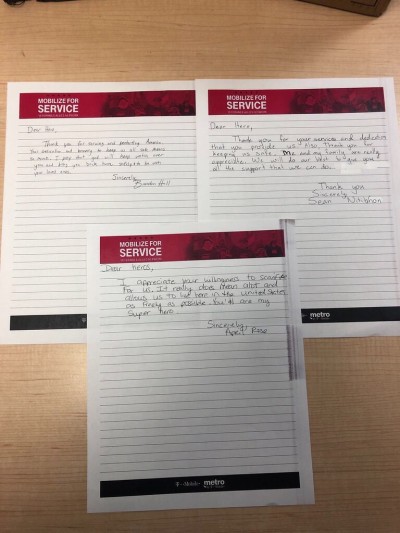 MOBILIZE FOR
SERVICE
Dear Hero,
Thank you for serving and protecting America.
Your dedication and bravery to keep us all safe means
so much. I pray that god will keep watch over
you and bring you back home safely to be with
your loved ones.
Sincerely,
Brandon Hall
MOBILIZE FOR
SERVICE
Dear Hero,
Thank you for your service and dedication
that you provide us. Also, Thank you for
keeping us safe. Me and my family are really
appreciate. We will do our best to give you
all the support that we can do.
Thank you
Sincerely
Sean
metro
MOBILIZE FOR
SERVICE
Dear heros,
I appreciate your willingness to sacrifice
for us. It really does mean alot and
allows us to live here in the United States
as freely as possible. You all are my
Super hero
Sincerely,
April Rose
T-Mobile
metro